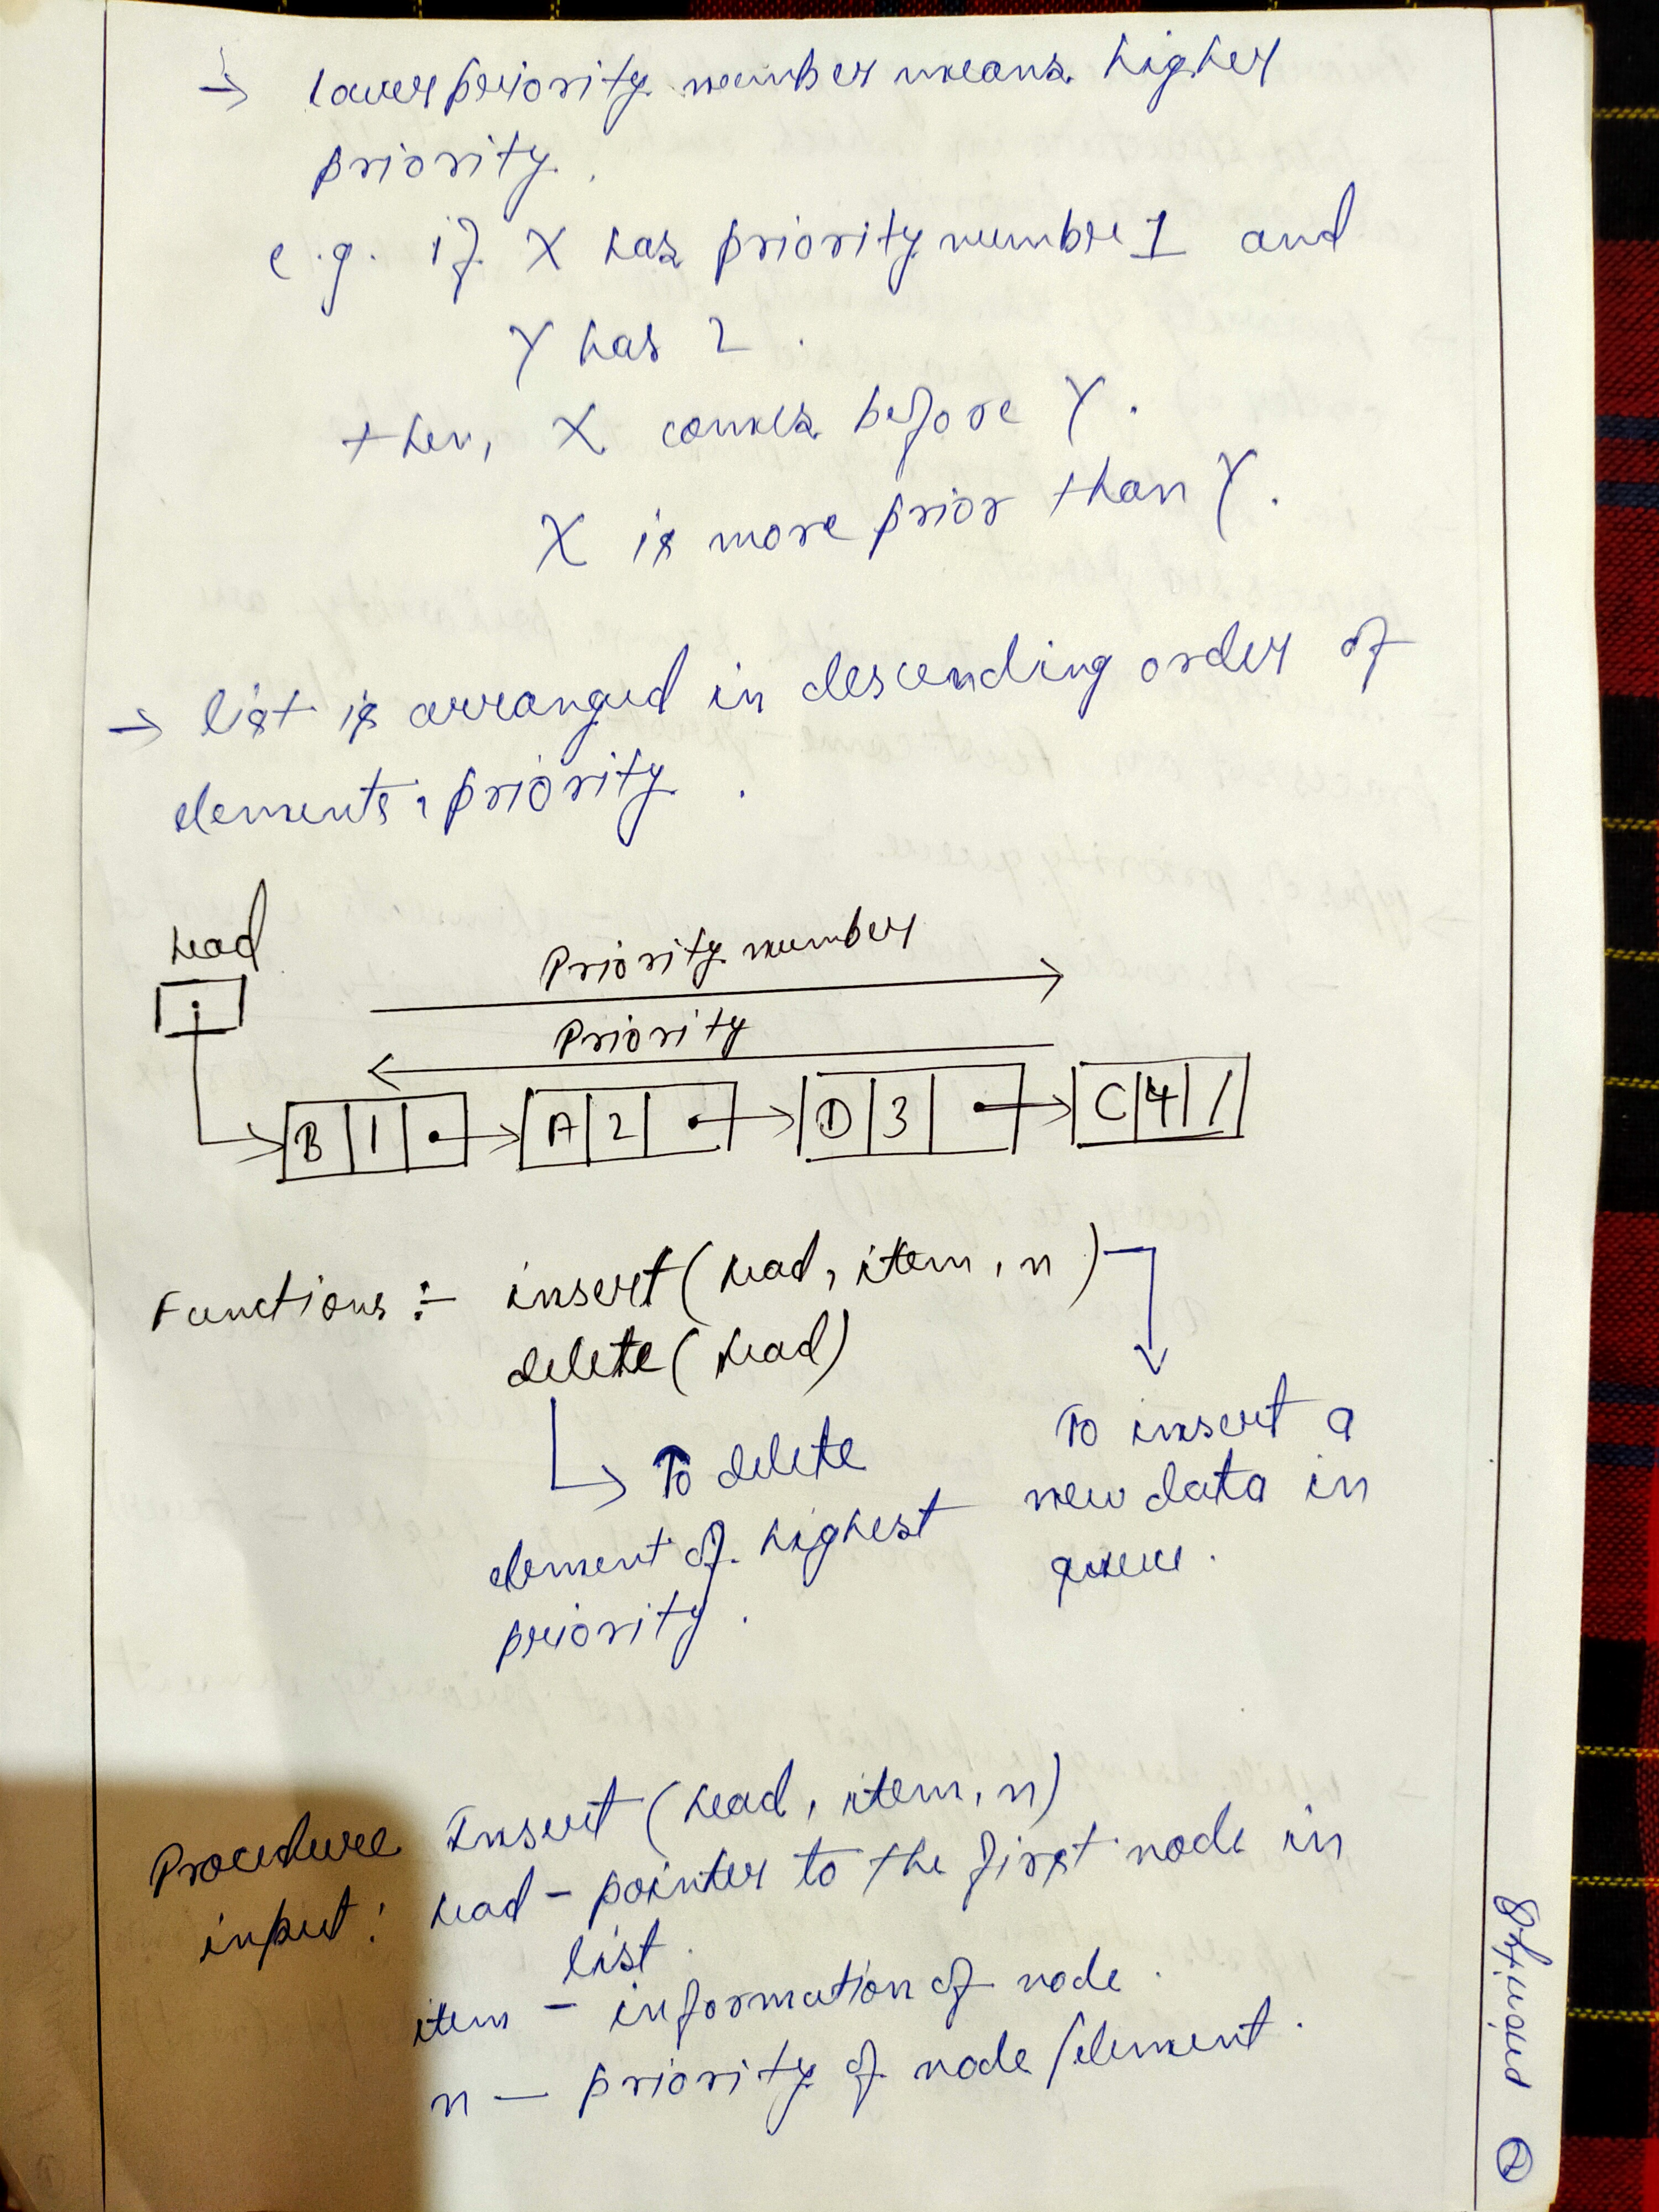 → lower priority number means higher
priority.
e.g. if X has priority number 1 and
Y has 2.
then, X comes before Y.
X is more prior than Y.
→ list is arranged in descending order of
elements, priority.
head
Priority number
Priority
B | 1 | A | 2 | D | 3 | C | 4 | /
Functions :- insert(head, item, n)
delete(head)
To delete
element of highest
priority.
To insert a
new data in
queue.
Procedure Insert(head, item, n)
input: head - pointer to the first node in
list.
item - information of node.
n - priority of node/element.
priority
2